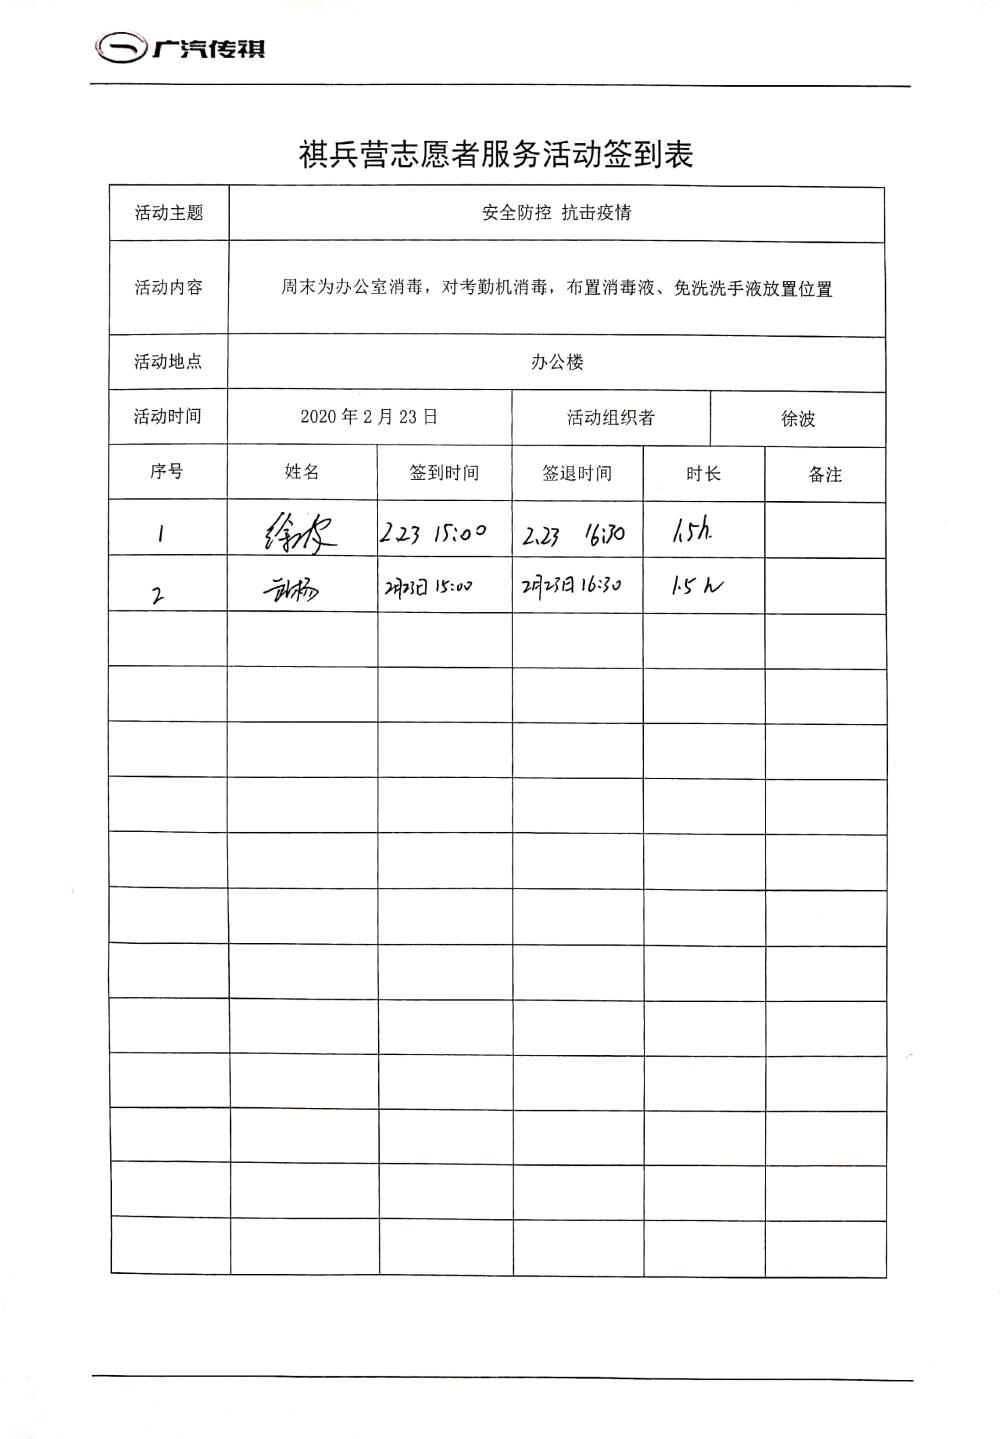 广汽传祺
祺兵营志愿者服务活动签到表
活动主题 安全防控 抗击疫情
活动内容 周末为办公室消毒，对考勤机消毒，布置消毒液、免洗洗手液放置位置
活动地点 办公楼
活动时间 2020年2月23日 活动组织者 徐波
序号 姓名 签到时间 签退时间 时长 备注
1 徐波 2.23 15:00 2.23 16:30 1.5h.
2 武杨 2月23日 15:00 2月23日 16:30 1.5h